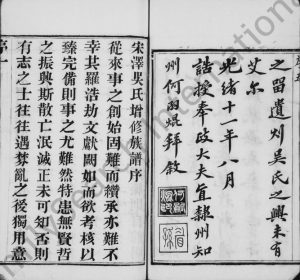 之留遺列吳氏之興未有
艾尒
光緒十一年八月
誥授奉政大夫宜報州知
州何
拜敘
宋澤吳氏增修族譜序
從來事之創始固難而纘承亦難不
幸其羅浩劫文獻闕如而欲考核以
臻完備則事之尤難然特患無賢哲
之振興斯散亡泯滅正未可知否則
有志之士往往遇兵亂之後獨用意
序一